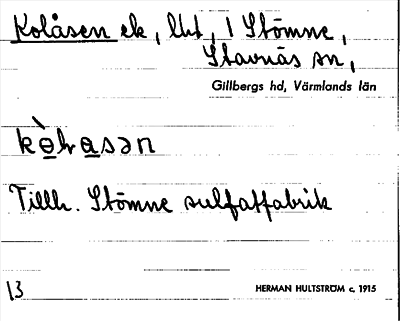 Kolåsen ek, lht, 1 Stömne,
Stavnäs sn,
Gillbergs hd, Värmlands län
Tillh. Stömne sulfatfabrik
13
HERMAN HULTSTRÖM c. 1915